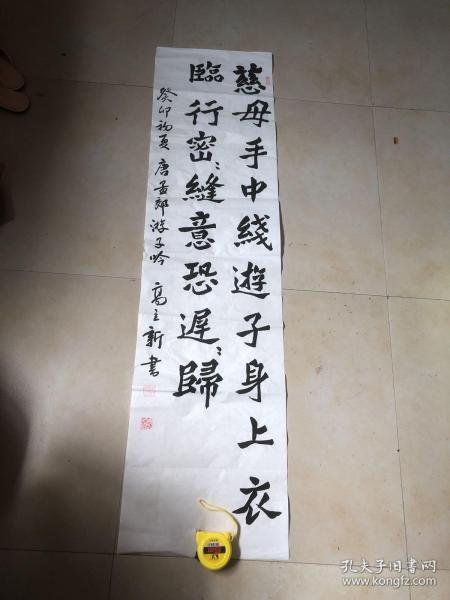 慈母手中綫遊子身上衣
臨行密〻縫意恐遲〻歸
癸卯初夏 唐孟郊游子吟 高立新書
孔夫子旧书网
www.kongfz.com